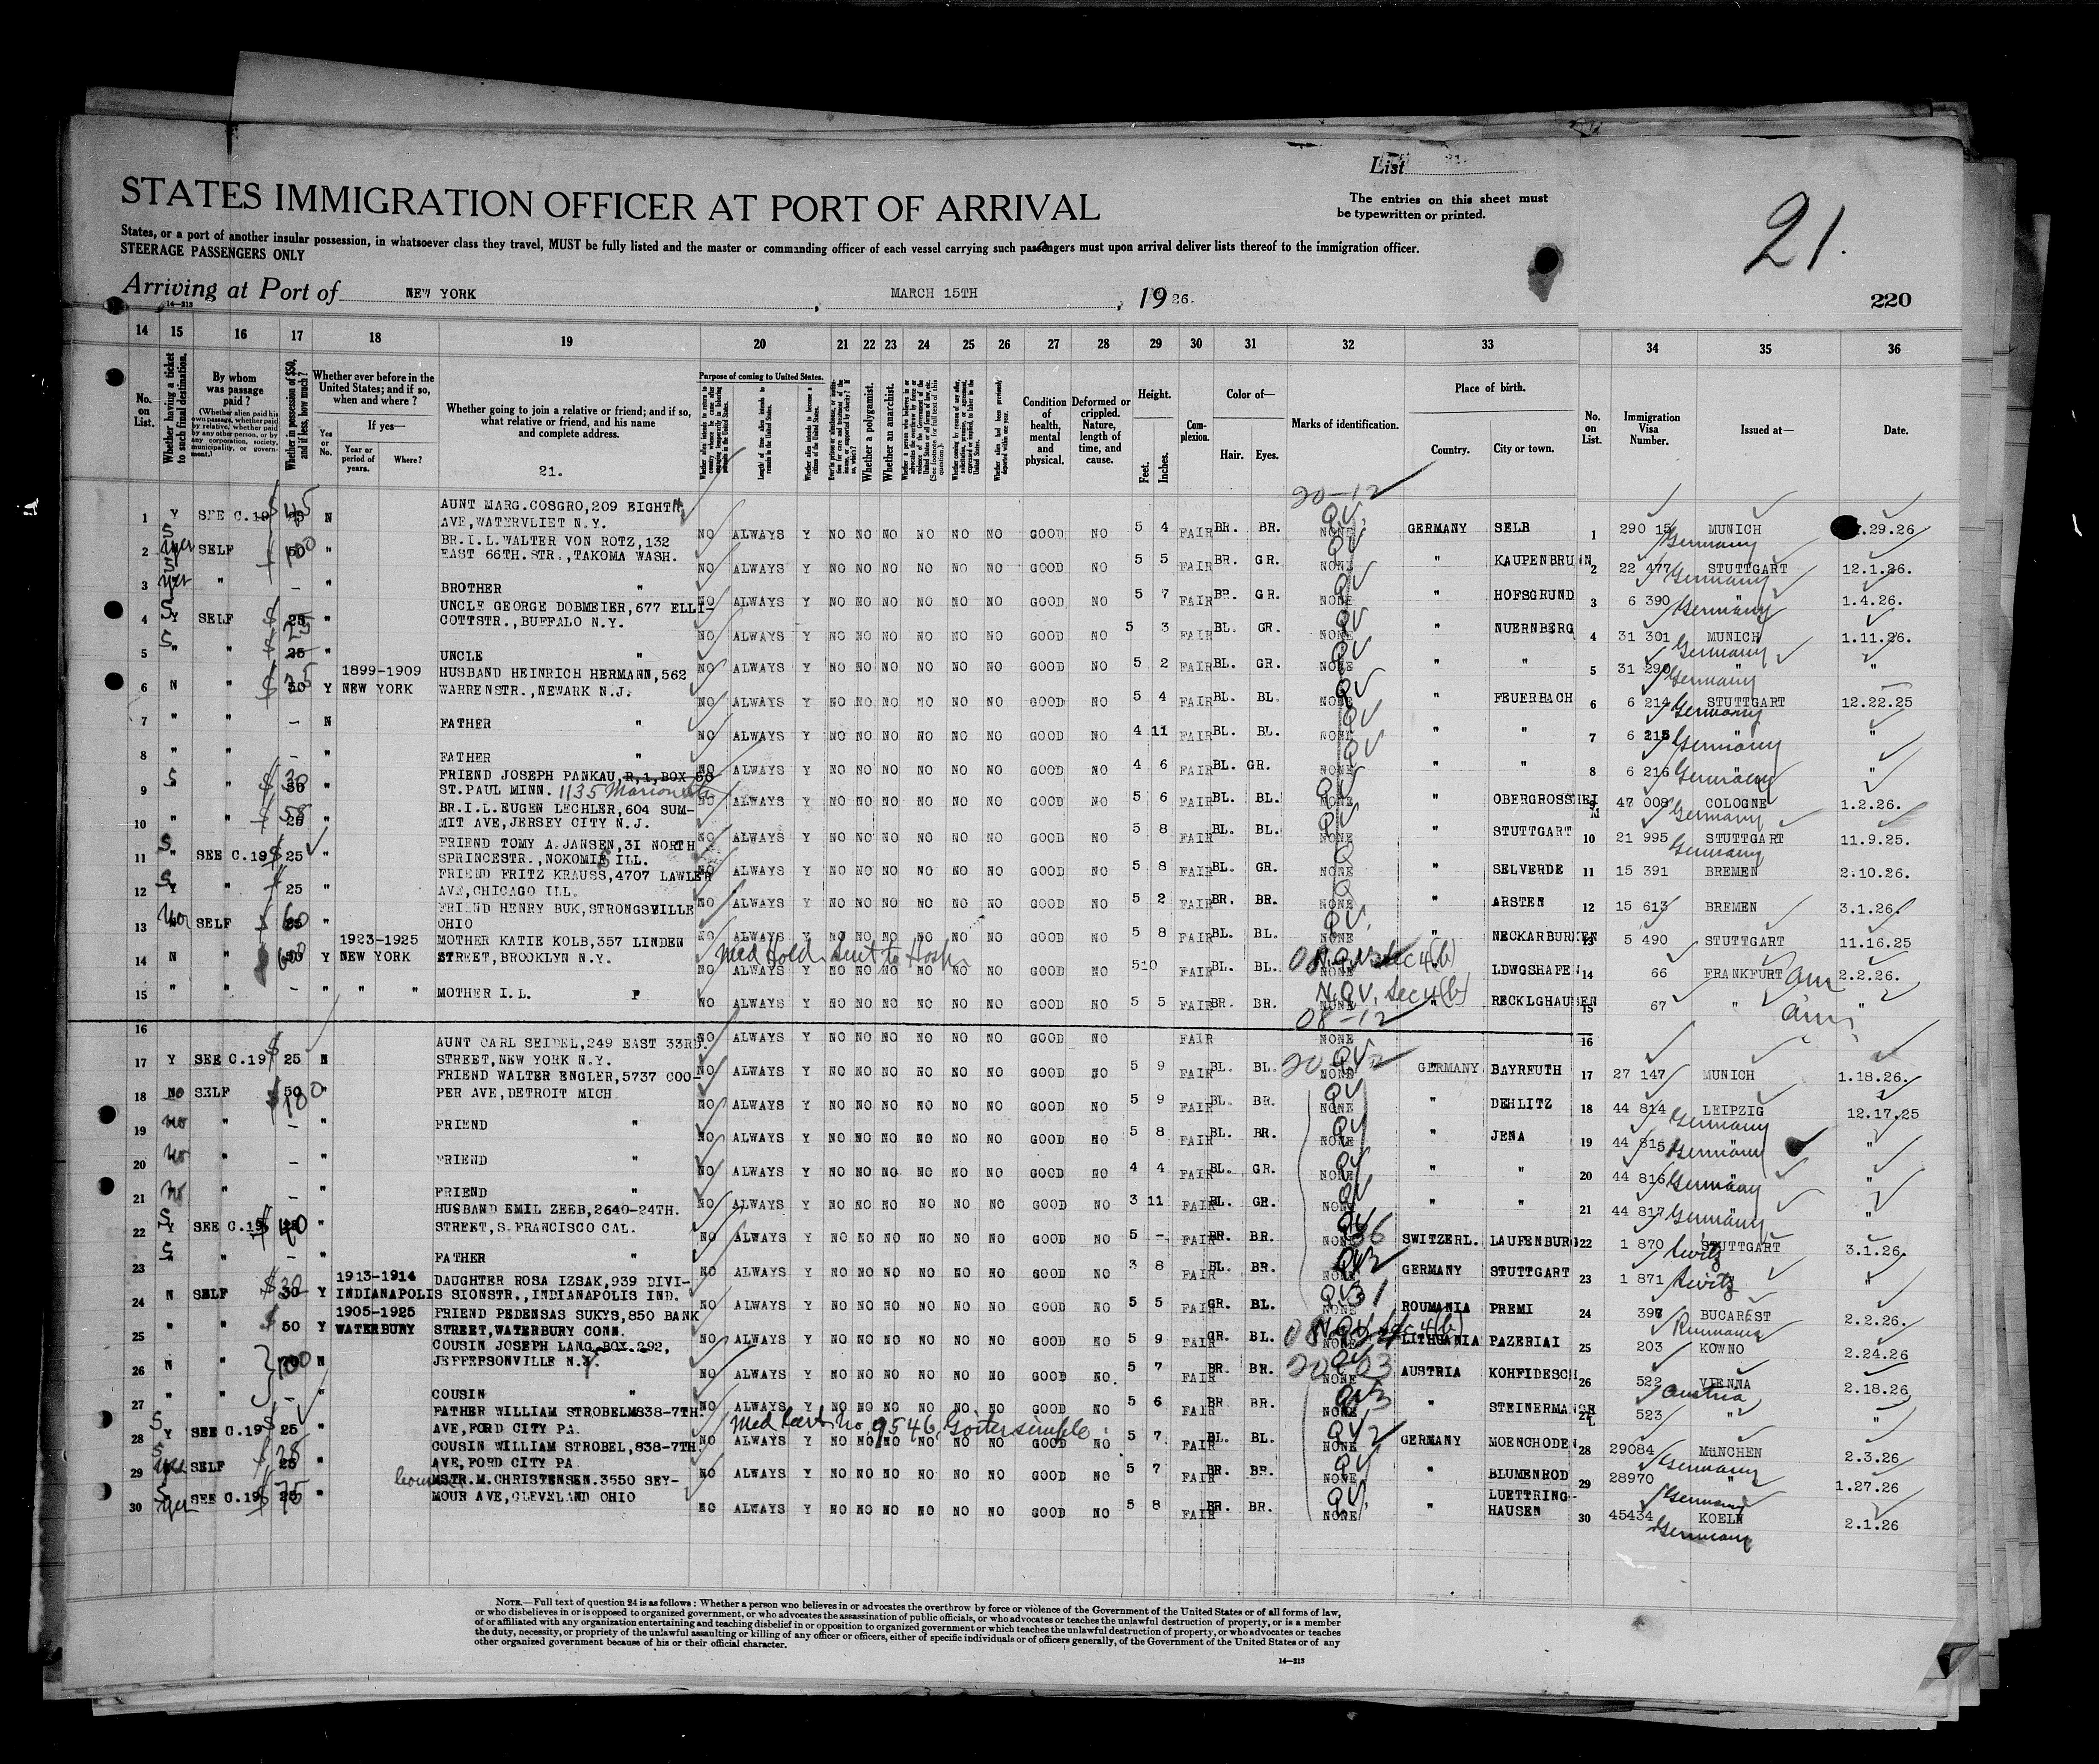 List 21.
STATES IMMIGRATION OFFICER AT PORT OF ARRIVAL
The entries on this sheet must
be typewritten or printed.
21.
States, or a port of another insular possession, in whatsoever class they travel, MUST be fully listed and the master or commanding officer of each vessel carrying such passengers must upon arrival deliver lists thereof to the immigration officer.
STEERAGE PASSENGERS ONLY
Arriving at Port of NEW YORK, MARCH 15TH, 1926.
14—213
220
14 15 16 17 18 19 20 21 22 23 24 25 26 27 28 29 30 31 32 33 34 35 36
No. on List.
Whether having a ticket to such final destination.
By whom was passage paid?
(Whether alien paid his own passage, whether paid by relative, whether paid by any other person, or by any corporation, society, municipality, or government.)
Whether in possession of $50, and if less, how much?
Whether ever before in the United States; and if so, when and where?
Yes or No.
If yes—
Year or period of years.
Where?
Whether going to join a relative or friend; and if so, what relative or friend, and his name and complete address.
21.
Purpose of coming to United States.
Length of time alien intends to remain in the United States.
Whether alien intends to become a citizen of the United States.
Whether a polygamist.
Whether an anarchist.
Condition of health, mental and physical.
Deformed or crippled. Nature, length of time, and cause.
Height.
Feet. Inches.
Complexion.
Color of—
Hair. Eyes.
Marks of identification.
Place of birth.
Country. City or town.
No. on List.
Immigration Visa Number.
Issued at—
Date.
20-12
1 Y SEE C.19 $45 N AUNT MARG.COSGRO,209 EIGHTH
AVE,WATERVLIET N.Y. NO ALWAYS Y NO NO NO NO NO NO GOOD NO 5 4 FAIR BR. BR. QV NONE GERMANY SELB 1 290 15 MUNICH Germany .29.26
2 yes SELF 50 100 " BR.I.L.WALTER VON ROTZ,132
EAST 66TH.STR.,TAKOMA WASH. NO ALWAYS Y NO NO NO NO NO NO GOOD NO 5 5 FAIR BR. GR. QV NONE " KAUPENBRUNN 2 22 477 STUTTGART Germany 12.1.26.
3 yes " — " BROTHER " NO ALWAYS Y NO NO NO NO NO NO GOOD NO 5 7 FAIR BR. GR. QV NONE " HOFSGRUND 3 6 390 " Germany 1.4.26.
4 Y SELF $ 25 " UNCLE GEORGE DOBMEIER,677 ELLI-
COTTSTR.,BUFFALO N.Y. NO ALWAYS Y NO NO NO NO NO NO GOOD NO 5 3 FAIR BL. GR. QV NONE " NUERNBERG 4 31 301 MUNICH Germany 1.11.26.
5 " " $ 25 " UNCLE " NO ALWAYS Y NO NO NO NO NO NO GOOD NO 5 2 FAIR BL. GR. QV NONE " " 5 31 290 " Germany "
6 N " $ 50 Y 1899-1909
NEW YORK HUSBAND HEINRICH HERMANN,562
WARRENSTR.,NEWARK N.J. NO ALWAYS Y NO NO NO NO NO NO GOOD NO 5 4 FAIR BL. BL. QV NONE " FEUERBACH 6 6 214 STUTTGART Germany 12.22.25
7 " " — N FATHER " NO ALWAYS Y NO NO NO NO NO NO GOOD NO 4 11 FAIR BL. BL. QV NONE " " 7 6 215 " Germany "
8 " " — " FATHER " NO ALWAYS Y NO NO NO NO NO NO GOOD NO 4 6 FAIR BL. GR. QV NONE " " 8 6 216 " Germany "
9 S " $ 30 " FRIEND JOSEPH PANKAU,R,1,BOX 58
ST.PAUL MINN. 1135 Marion NO ALWAYS Y NO NO NO NO NO NO GOOD NO 5 6 FAIR BL. BL. QV NONE " OBERGROSSHEIM 9 47 008 COLOGNE Germany 1.2.26.
10 " " 25 " BR.I.L.EUGEN LECHLER,604 SUM-
MIT AVE,JERSEY CITY N.J. NO ALWAYS Y NO NO NO NO NO NO GOOD NO 5 8 FAIR BL. BL. QV NONE " STUTTGART 10 21 995 STUTTGART Germany 11.9.25.
11 " SEE C.19 $ 25 " FRIEND TOMY A.JANSEN,31 NORTH
SPRINCESTR.,NOKOMIS ILL. NO ALWAYS Y NO NO NO NO NO NO GOOD NO 5 8 FAIR BL. GR. Q NONE " SELVERDE 11 15 391 BREMEN 2.10.26.
12 Y " 25 " FRIEND FRITZ KRAUSS,4707 LAWLER
AVE,CHICAGO ILL. NO ALWAYS Y NO NO NO NO NO NO GOOD NO 5 2 FAIR BR. BR. Q NONE " ARSTEN 12 15 613 BREMEN 3.1.26.
13 No SELF $ 60 " FRIEND HENRY BUK,STRONGSVILLE
OHIO NO ALWAYS Y NO NO NO NO NO NO GOOD NO 5 8 FAIR BL. BL. QV NONE " NECKARBURKEN 13 5 490 STUTTGART 11.16.25
14 N " Y 1923-1925
NEW YORK MOTHER KATIE KOLB,357 LINDEN
STREET,BROOKLYN N.Y. Med Hold Sent to Hosp NO ALWAYS Y NO NO NO NO NO NO GOOD NO 5 10 FAIR BL. BL. N.Q.V. Sec 4(b) NONE " LDWGSHAFEN 14 66 FRANKFURT am 2.2.26.
15 " " — " " " MOTHER I.L. NO ALWAYS Y NO NO NO NO NO NO GOOD NO 5 5 FAIR BR. BR. N.Q.V. Sec 4(b) NONE " RECKLGHAUSEN 15 67 " am "
08-12
16 NO ALWAYS Y NO NO NO NO NO NO GOOD NO FAIR NONE 16
17 Y SEE C.19 $ 25 N AUNT CARL SEIDEL,249 EAST 33RD.
STREET,NEW YORK N.Y. NO ALWAYS Y NO NO NO NO NO NO GOOD NO 5 9 FAIR BL. BL. 20-12 QV NONE GERMANY BAYREUTH 17 27 147 MUNICH 1.18.26.
18 NO SELF $ 50 100 " FRIEND WALTER ENGLER,5737 COO-
PER AVE,DETROIT MICH NO ALWAYS Y NO NO NO NO NO NO GOOD NO 5 9 FAIR BL. BR. QV NONE " DEHLITZ 18 44 814 LEIPZIG Germany 12.17.25
19 no " — " FRIEND " NO ALWAYS Y NO NO NO NO NO NO GOOD NO 5 8 FAIR BL. BR. QV NONE " JENA 19 44 815 Germany "
20 no " — " FRIEND " NO ALWAYS Y NO NO NO NO NO NO GOOD NO 4 4 FAIR BL. GR. QV NONE " " 20 44 816 Germany "
21 no " — " FRIEND " NO ALWAYS Y NO NO NO NO NO NO GOOD NO 3 11 FAIR BL. GR. QV NONE " " 21 44 817 Germany "
22 Y SEE C.19 $ 40 " HUSBAND EMIL ZEEB,2640-24TH.
STREET,S.FRANCISCO CAL. NO ALWAYS Y NO NO NO NO NO NO GOOD NO 5 — FAIR BR. BR. QV 36 NONE SWITZERL. LAUFENBURG 22 1 870 STUTTGART 3.1.26.
23 S " — " FATHER " NO ALWAYS Y NO NO NO NO NO NO GOOD NO 3 8 FAIR BL. BR. NONE GERMANY STUTTGART 23 1 871 "
24 N SELF $ 30 Y 1913-1914
INDIANAPOLIS DAUGHTER ROSA IZSAK,939 DIVI-
SIONSTR.,INDIANAPOLIS IND. NO ALWAYS Y NO NO NO NO NO NO GOOD NO 5 5 FAIR GR. BL. QV 31 NONE ROUMANIA PREMI 24 398 BUCAREST Rumania 2.2.26.
25 " " $ 50 Y 1905-1925
WATERBURY FRIEND PEDENSAS SUKYS,850 BANK
STREET,WATERBURY CONN. NO ALWAYS Y NO NO NO NO NO NO GOOD NO 5 9 FAIR GR. BL. N.Q.V. Sec 4(b) NONE LITHUANIA PAZERIAI 25 203 KOWNO 2.24.26
26 N " 100 N COUSIN JOSEPH LANG,BOX 292,
JEFFERSONVILLE N.Y. NO ALWAYS Y NO NO NO NO NO NO GOOD NO. 5 7 FAIR BR. BR. 20-03 QV NONE AUSTRIA KOHFIDESCH 26 522 VIENNA Austria 2.18.26
27 " " — " COUSIN " NO ALWAYS Y NO NO NO NO NO NO GOOD NO 5 6 FAIR BR. BR. NONE " STEINERMANGL 27 523 " "
28 Y SEE C.19 $ 25 " FATHER WILLIAM STROBEL,838-7TH.
AVE,FORD CITY PA. Med Cert. No 9546 Goiter simple NO ALWAYS Y NO NO NO NO NO NO GOOD NO 5 7 FAIR BL. BL. QV 12 NONE GERMANY MOENCHODEN 28 29084 MüNCHEN Germany 2.3.26
29 yes SELF 25 " COUSIN WILLIAM STROBEL,838-7TH.
AVE,FORD CITY PA NO ALWAYS Y NO NO NO NO NO NO GOOD NO 5 7 FAIR BR. BR. QV NONE " BLUMENROD 29 28970 " Germany 1.27.26
30 yes SEE C.19 $ 75 " cousin MSTR.M.CHRISTENSEN.3550 SEY-
MOUR AVE,CLEVELAND OHIO NO ALWAYS Y NO NO NO NO NO NO GOOD NO 5 8 FAIR BR. BR. QV NONE " LUETTRING-
HAUSEN 30 45434 KOELN Germany 2.1.26
NOTE.—Full text of question 24 is as follows: Whether a person who believes in or advocates the overthrow by force or violence of the Government of the United States or of all forms of law,
or who disbelieves in or is opposed to organized government, or who advocates the assassination of public officials, or who advocates or teaches the unlawful destruction of property, or is a member
of or affiliated with any organization entertaining and teaching disbelief in or opposition to organized government or which teaches the unlawful destruction of property, or who advocates or teaches
the duty, necessity, or propriety of the unlawful assaulting or killing of any officer or officers, either of specific individuals or of officers generally, of the Government of the United States or of any
other organized government because of his or their official character.
14—213